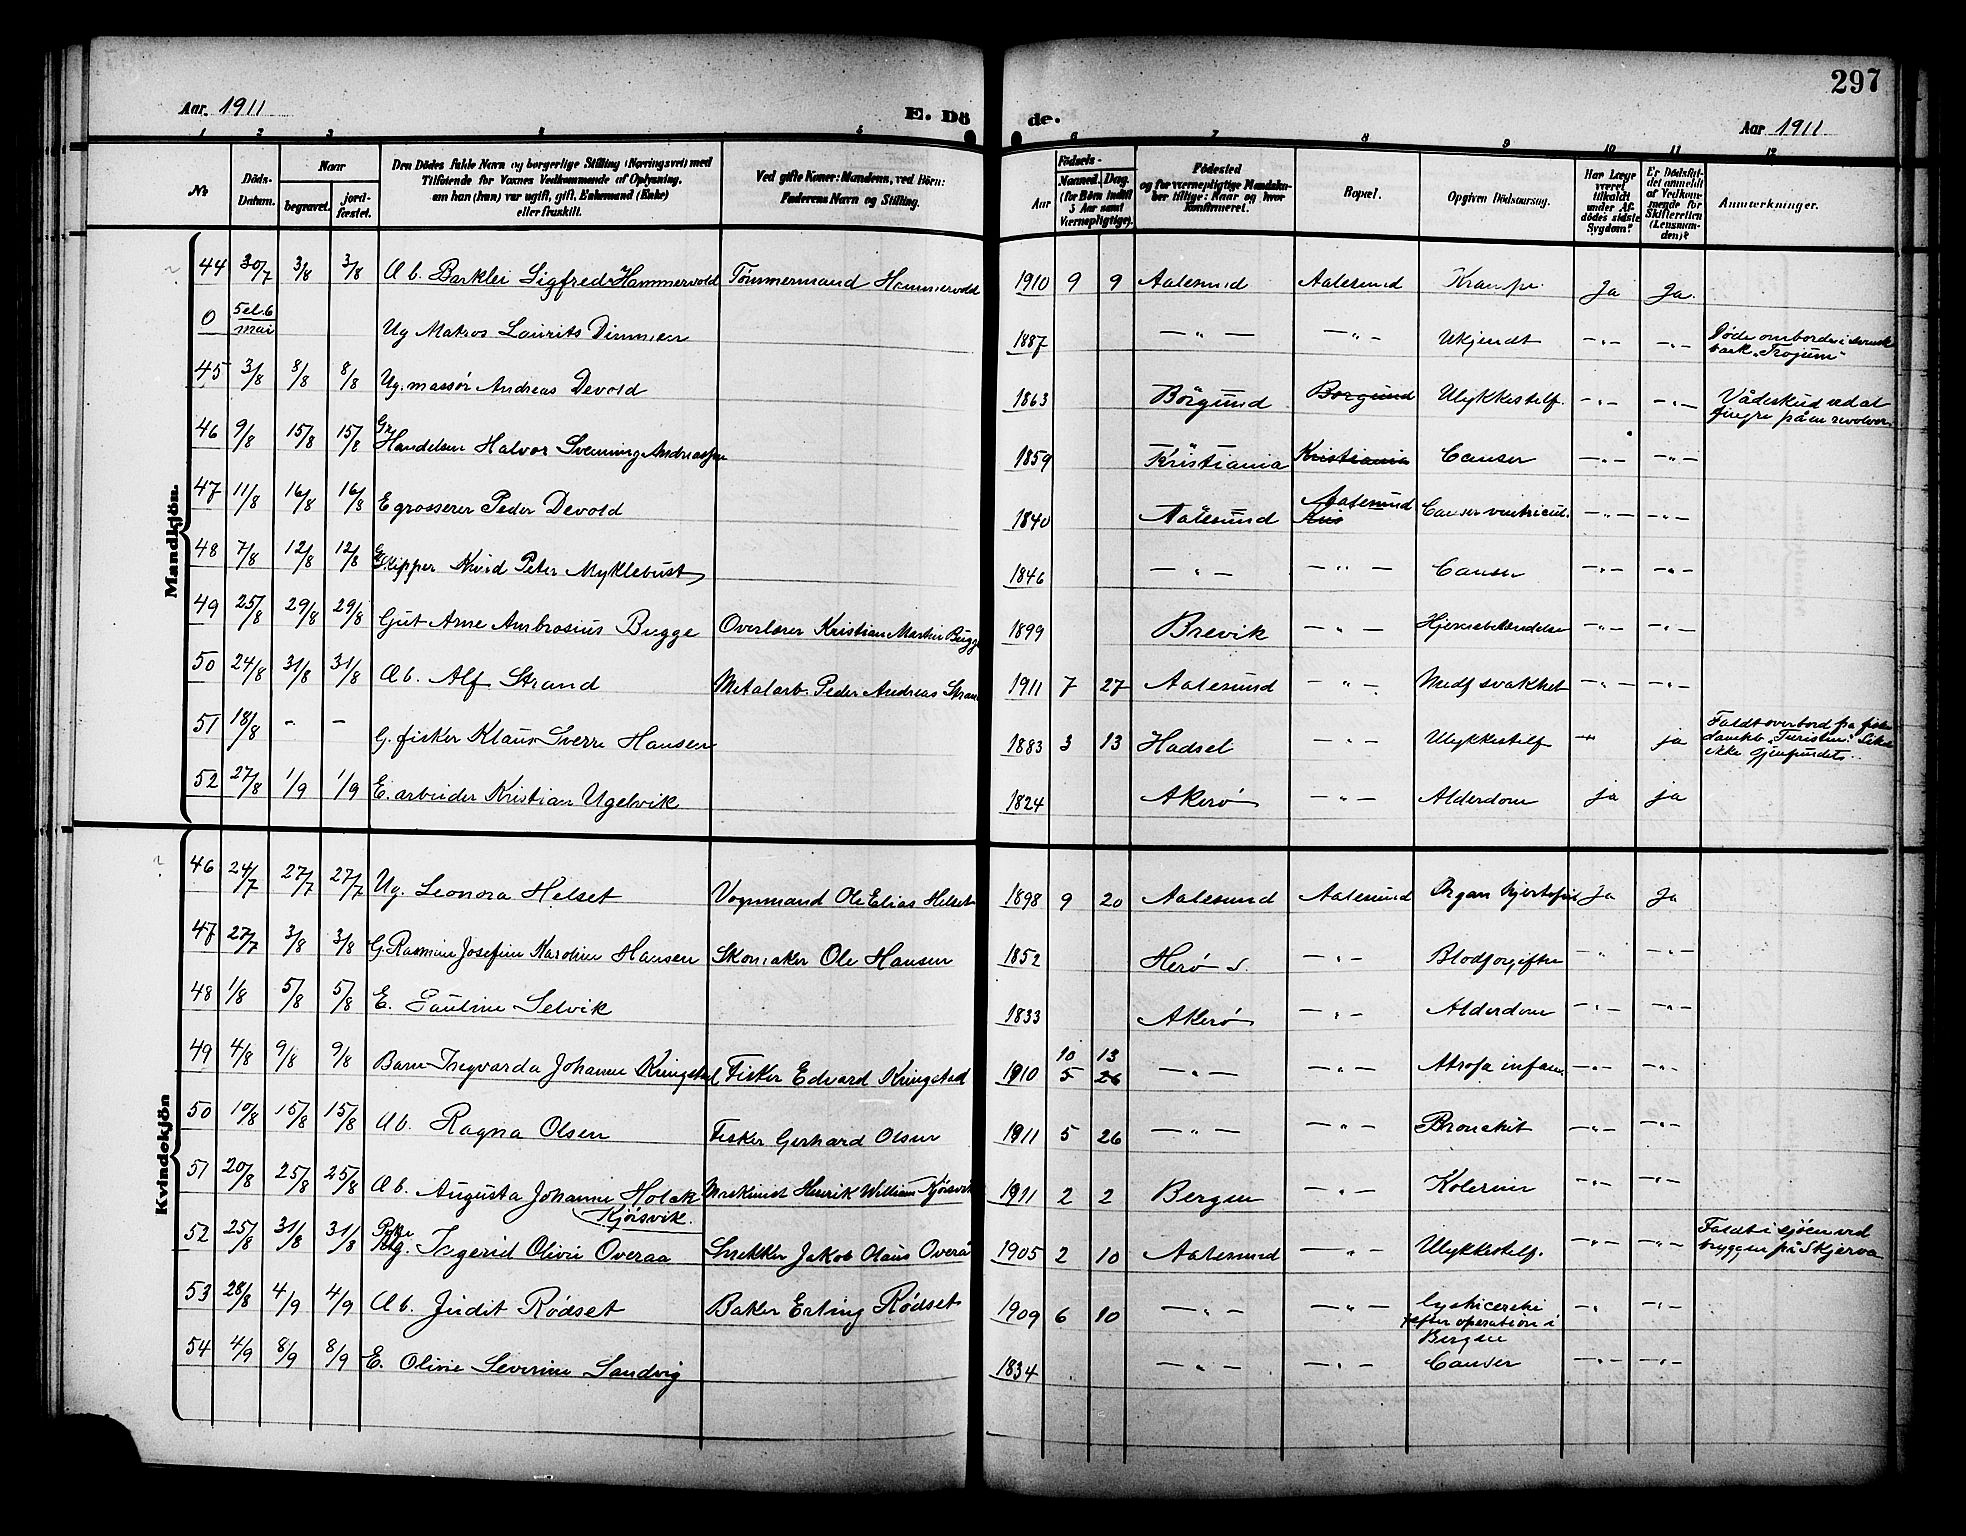 297
Aar 1911 E. Dö de. Aar 1911
1 2 3 4 5 6 7 8 9 10 11 12
No
Döds-Datum.
Naar
begravet.
jord-fæstet.
Den Dödes fulde Navn og borgerlige Stilling (Næringsvei) med
Tilföiende for Voxnes Vedkommende af Oplysning,
om han (hun) var ugift, gift, Enkemand (Enke)
eller fraskilt.
Ved gifte Koner: Mandens, ved Börn:
Faderens Navn og Stilling.
Födsels-
Aar Maaned. Dag.
(for Börn indtil
5 Aar samt
Værnepligtige).
Födested
og for værnepligtige Mandska-
ber tillige: Naar og hvor
konfirmeret.
Bopæl.
Opgiven Dödsaarsag.
Har Læge
været
tilkaldt
under Af-
dödes sidste
Sygdom?
Er Dödsfal-
det anmeldt
af Vedkom-
mende for
Skifteretten
(Lensman-
den)?
Anmærkninger.
Mandkjön.
44 30/7 3/8 3/8 Ab. Barklei Sigfred Hammervold Tömmermand Hammervold 1910 9 9 Aalesund Aalesund Krampe Ja Ja.
0 5 el. 6 mai Ug Matros Laurits Dimmen 1887 — " — — " — Ukjendt — " — — " — Döde ombord i svensk
bark "Trojum"
45 3/8 8/8 8/8 Ug. massör Andreas Devold 1863 Borgund Borgund Ulykkestilf. — " — — " — Vådeskud ved at
fingre på en revolver
46 9/8 15/8 15/8 G. Handelsm Halvor Svenning Andreassen 1859 Kristiania Kristiania Canser — " — — " —
47 11/8 16/8 16/8 E grosserer Peder Devold 1840 Aalesund Aalesund Canser ventricul. — " — — " —
48 7/8 12/8 12/8 Skipper Knud Peter Myklebust 1846 — " — — " — Canser — " — — " —
49 25/8 29/8 29/8 Gut Arne Ambrosius Bugge Overlærer Kristian Martin Bugge 1899 Brevik — " — Hjernebetændelse — " — — " —
50 24/8 31/8 31/8 Ab. Alf Strand Metalarb. Peder Andreas Strand 1911 7 27 Aalesund — " — Medf svakhet — " — — " —
51 18/8 - — G. fisker Klaus Sverre Hansen 1883 3 13 Hadsel — " — Ulykkestilf — " ja Faldt overbord fra fiske
dampsk. "Turisten". Liket
ikke gjenfundet.
52 27/8 1/9 1/9 E. arbeider Kristian Ugelvik 1824 Akerø — " — Alderdom ja ja
Kvindekjön
46 24/7 27/7 27/7 Ug. Leonora Helset Vognmand Ole Elias Helset 1898 9 20 Aalesund Aalesund Organ hjertefeil Ja Ja
47 27/7 3/8 3/8 G. Rasmine Josefine Karoline Hansen Skomaker Ole Hansen 1852 Herø S. — " — Blodforgiftn " — " —
48 1/8 5/8 5/8 E. Pauline Selvik 1833 Akerø — " — Alderdom — " — — " —
49 4/8 9/8 9/8 Barn Ingvarda Johanne Kringstad Fisker Edvard Kringstad 1910 10 5 13 26 — " — — " — Atrofa infan. — " — — " —
50 10/8 15/8 15/8 Ab. Ragna Olsen Fisker Gerhard Olsen 1911 5 26 — " — — " — Bronchit — " — — " —
51 20/8 25/8 25/8 Ab. Augusta Johanne Holck
Kjörsvik. Maskinist Henrik William Kjörsvik 1911 2 2 Bergen — " — Kolerine — " — — " —
52 25/8 31/8 31/8 Pike Ingerid Olivie Overaa Snekker Jakob Olaus Overå 1905 2 10 Aalesund — " — Ulykkestilf. — " — — " — Faldt i sjöen ved
bryggen på Skjerva
53 28/8 4/9 4/9 Ab. Judit Rødset Baker Erling Rødset 1909 6 10 — " — — " — Cysticerchi
efter operation i
Bergen — " — " —
54 4/9 8/9 8/9 E. Oline Severine Sandvig 1834 — " — — " — Canser — " — — " —